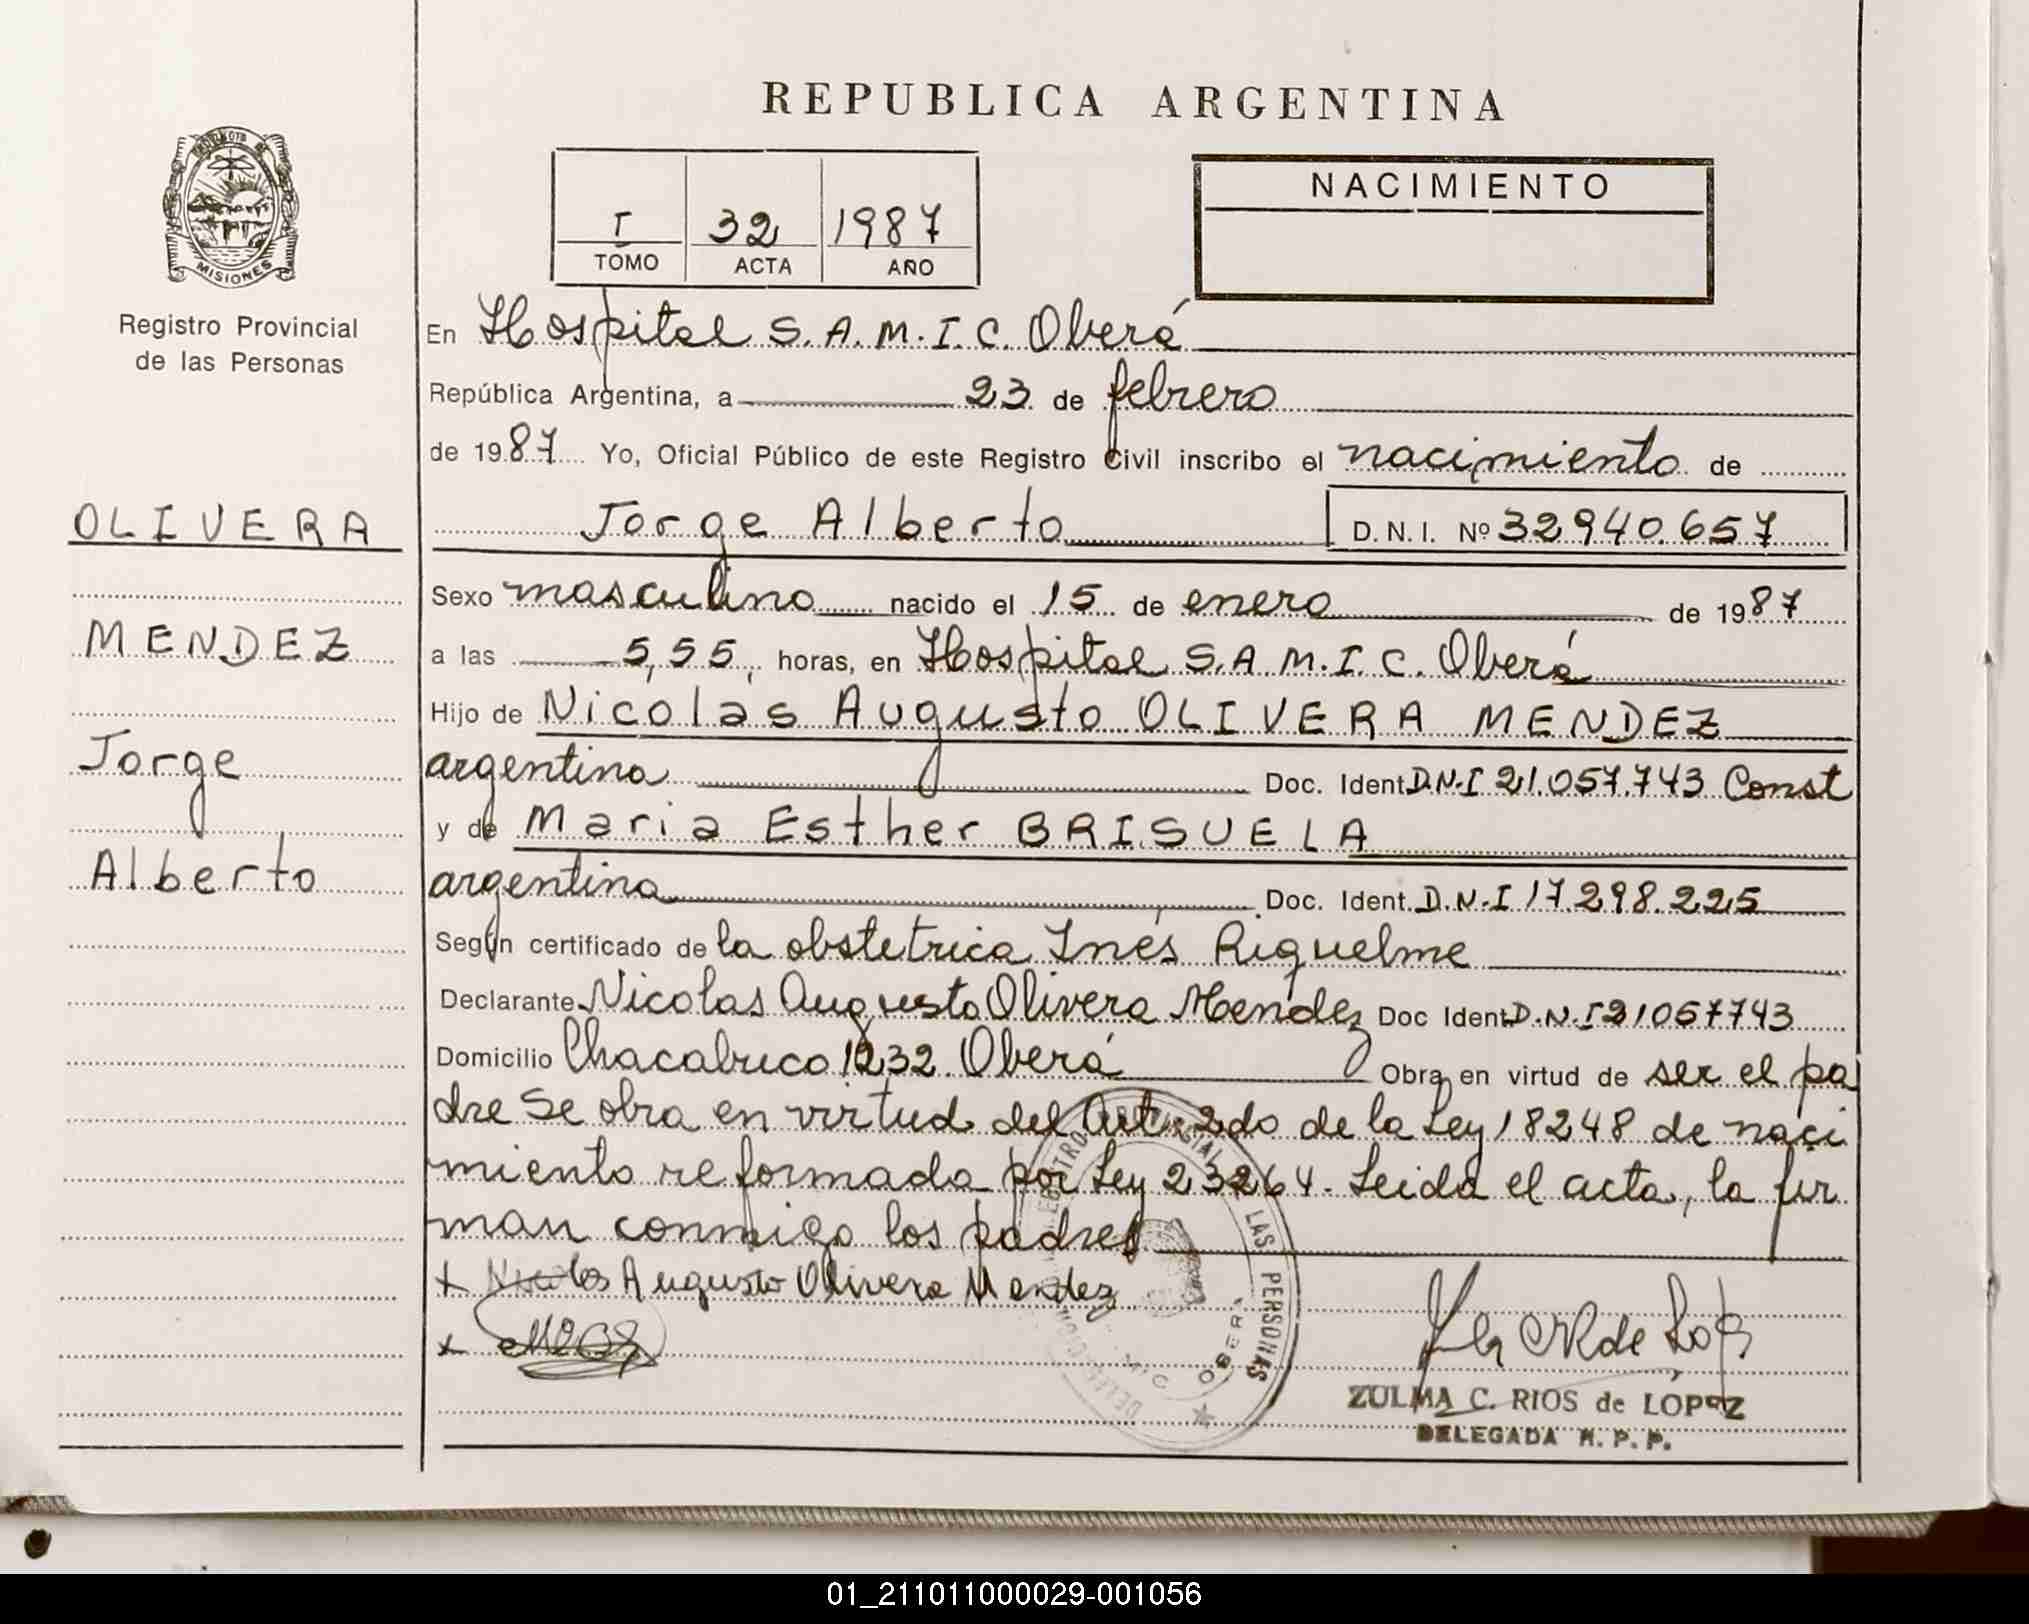 REPUBLICA ARGENTINA
MISIONES
Registro Provincial
de las Personas
I 32 1987
TOMO ACTA AÑO
NACIMIENTO
En Hospital S.A.M.I.C. Oberá
República Argentina, a 23 de febrero
de 1987 Yo, Oficial Público de este Registro Civil inscribo el nacimiento de
OLIVERA
MENDEZ
Jorge
Alberto
Jorge Alberto D.N.I. Nº 32940.657
Sexo masculino nacido el 15 de enero de 1987
a las 5,55, horas, en Hospital S.A.M.I.C. Oberá
Hijo de Nicolás Augusto OLIVERA MENDEZ
argentina Doc. Ident D.N.I 21.057.743 Const
y de Maria Esther BRISUELA
argentina Doc. Ident. D.N.I 17.298.225
Según certificado de la obstetrica Inés Riquelme
Declarante Nicolas Augusto Olivera Mendez Doc Ident D.N.I 21057743
Domicilio Chacabuco 1232 Oberá Obra en virtud de ser el pa
dre Se obra en virtud del Art. 2do de la Ley 18248 de naci
miento reformada por Ley 23264. Leida el acta, la fir
man conmigo los padres
x Nicolas Augusto Olivera Mendez
x
LAS PERSONAS
OBERÁ
ZULMA C. RIOS de LÓPEZ
DELEGADA R. P. P.
01_211011000029-001056